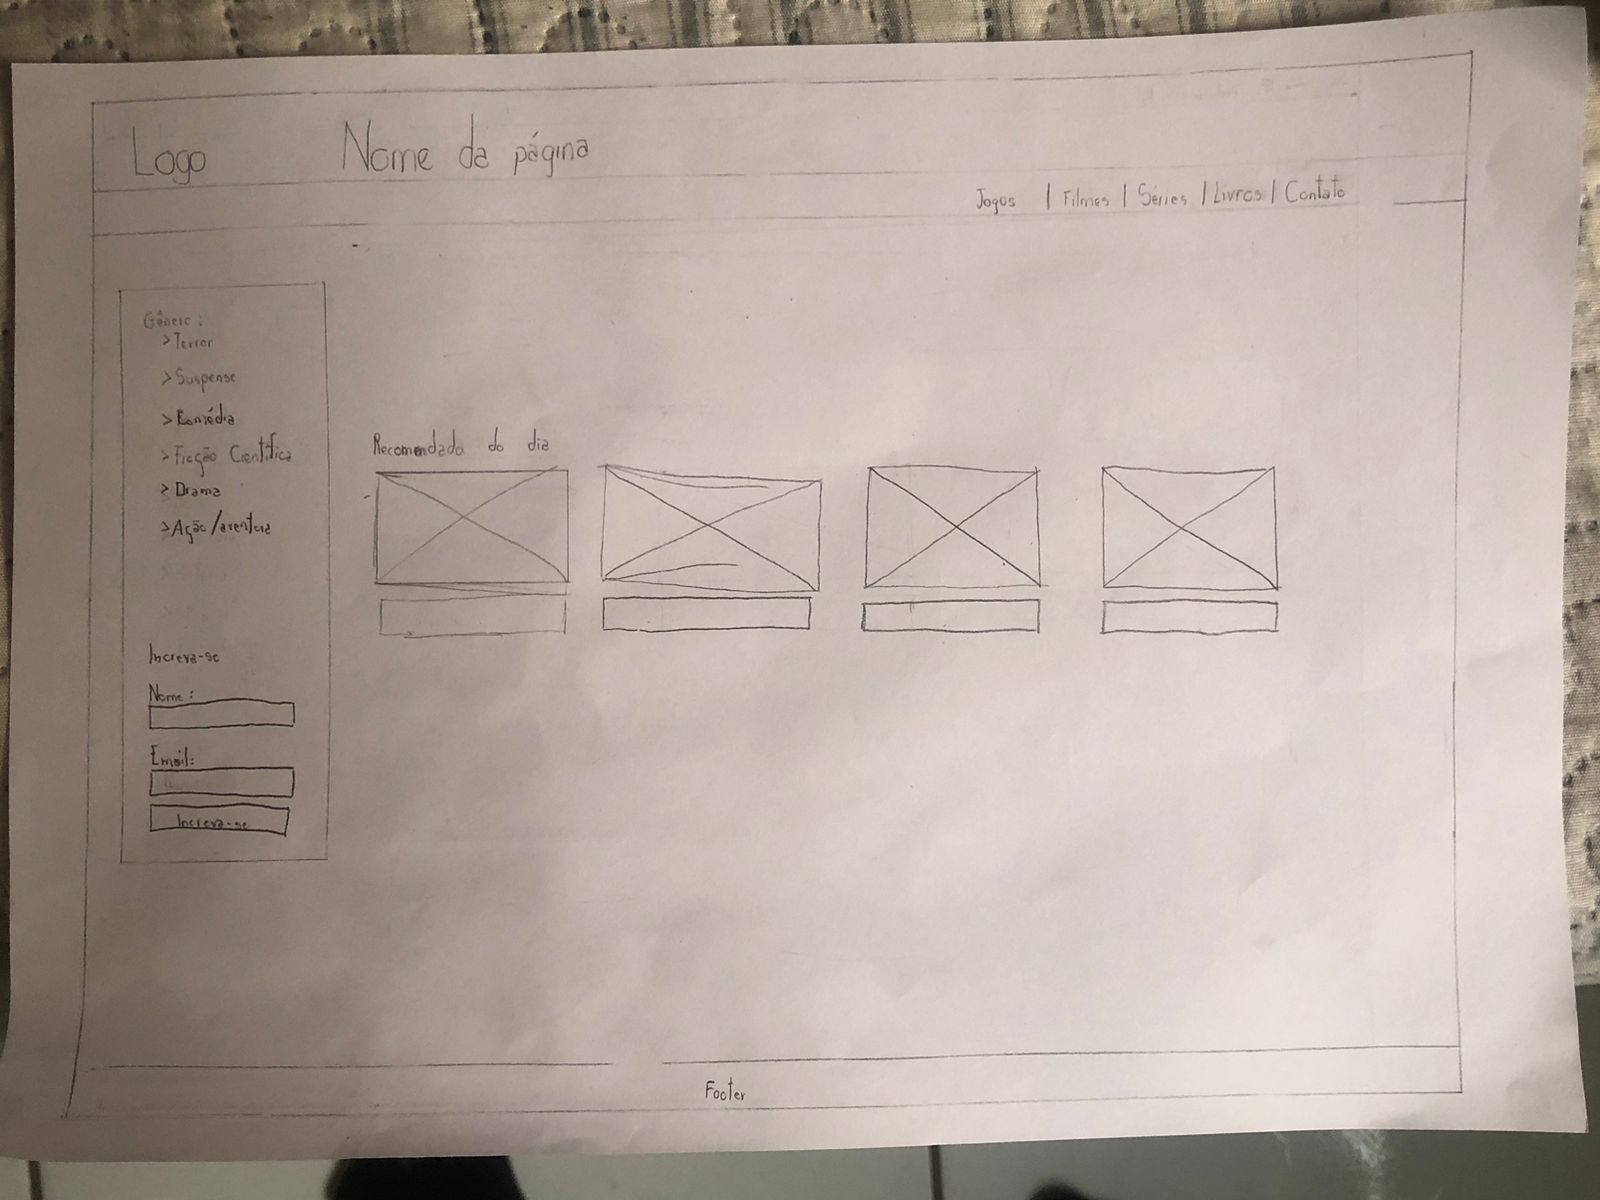 Logo Nome da página
Jogos | Filmes | Séries | Livros | Contato
Gênero :
> Terror
> Suspense
> Comédia
> Ficção Científica
> Drama
> Ação/aventura
Recomendado do dia
Increva-se
Nome :
Email:
Increva-se
Footer